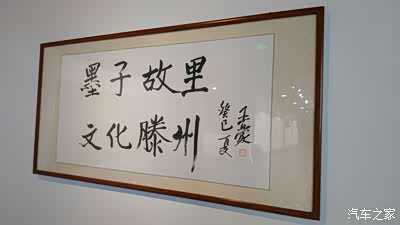 墨子故里
文化滕州
癸巳夏
汽车之家